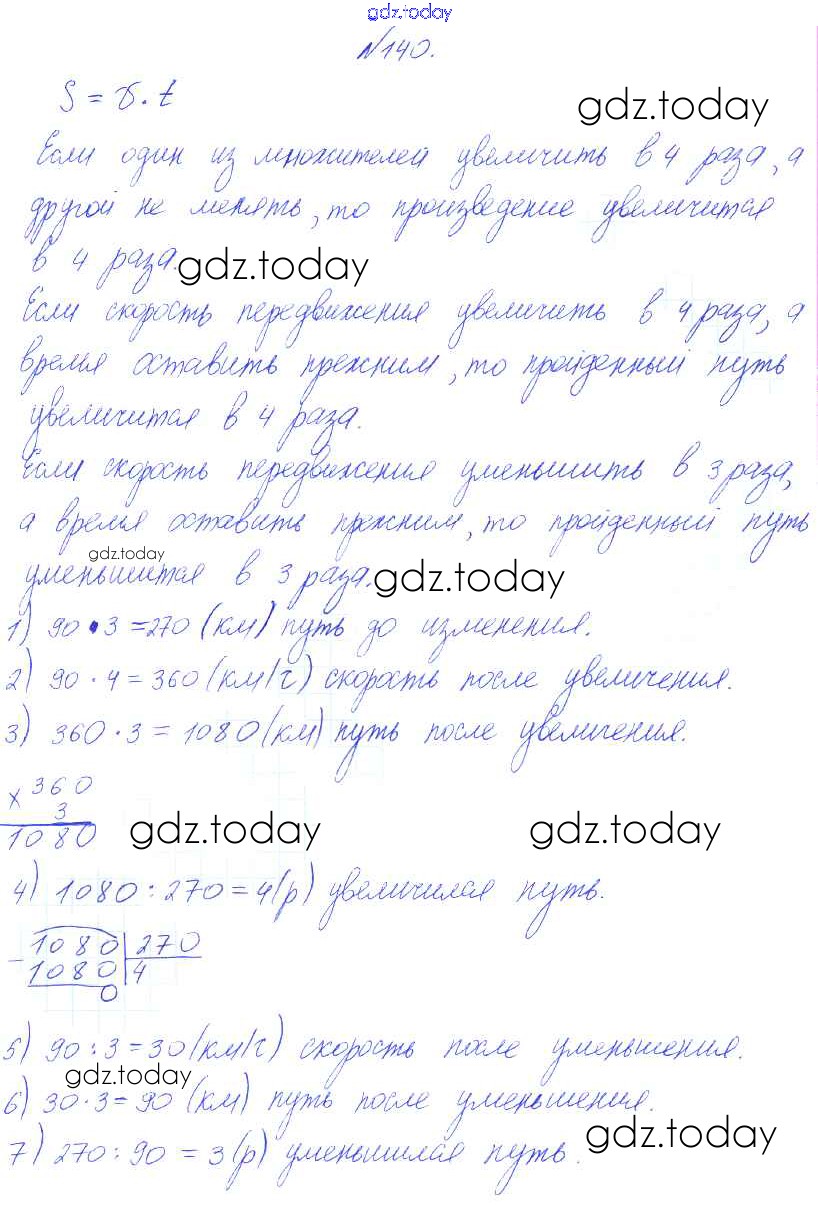 gdz.today
№140.
S = v · t
gdz.today
Если один из множителей увеличить в 4 раза, а
другой не менять, то произведение увеличится
в 4 раза.
gdz.today
Если скорость передвижения увеличить в 4 раза, а
время оставить прежним, то пройденный путь
увеличится в 4 раза.
Если скорость передвижения уменьшить в 3 раза,
а время оставить прежним, то пройденный путь
gdz.today
уменьшится в 3 раза.
gdz.today
1) 90 · 3 = 270 (км) путь до изменения.
2) 90 · 4 = 360 (км/ч) скорость после увеличения.
3) 360 · 3 = 1080 (км) путь после увеличения.
× 360
3
1080
gdz.today
gdz.today
4) 1080 : 270 = 4 (р) увеличился путь.
- 1080 | 270
1080 | 4
0
5) 90 : 3 = 30 (км/ч) скорость после уменьшения.
gdz.today
6) 30 · 3 = 90 (км) путь после уменьшения.
gdz.today
7) 270 : 90 = 3 (р) уменьшился путь.